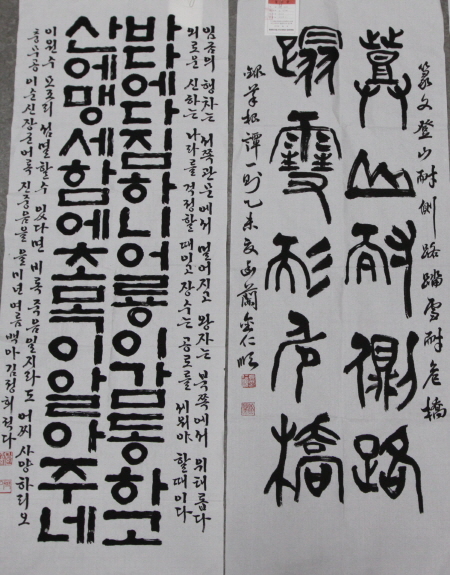 임금의 행차는 서쪽관문에서 멀어지고 왕자는 북쪽에서 위태롭다
외로운 신하는 나라를 걱정할 때이고 장수는 공로를 세워야 할 때이다
바다에다짐하니어룡이감동하고
산에맹세함에초목이알아주네
이원수 모조리 섬멸할수 있다면 비록 죽음일지라도 어찌 사양하리오
충무공 이순신장군어록 진중음을 을미년 여름 백아 김정희 적다
篆文登山耐側路踏雪耐危橋
登山耐側路
踏雪耐危橋
錄菜根譚一則乙未夏蘭金仁順